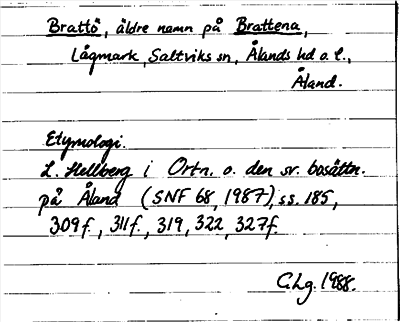 Brattö, äldre namn på Brattena,
Lågmark, Saltviks sn, Ålands hd o. l.,
Åland.
Etymologi.
L. Hellberg i Ortn. o. den sv. bosättn.
på Åland (SNF 68, 1987), ss. 185,
309f., 311f., 319, 322, 327f.
C.Lg. 1988.